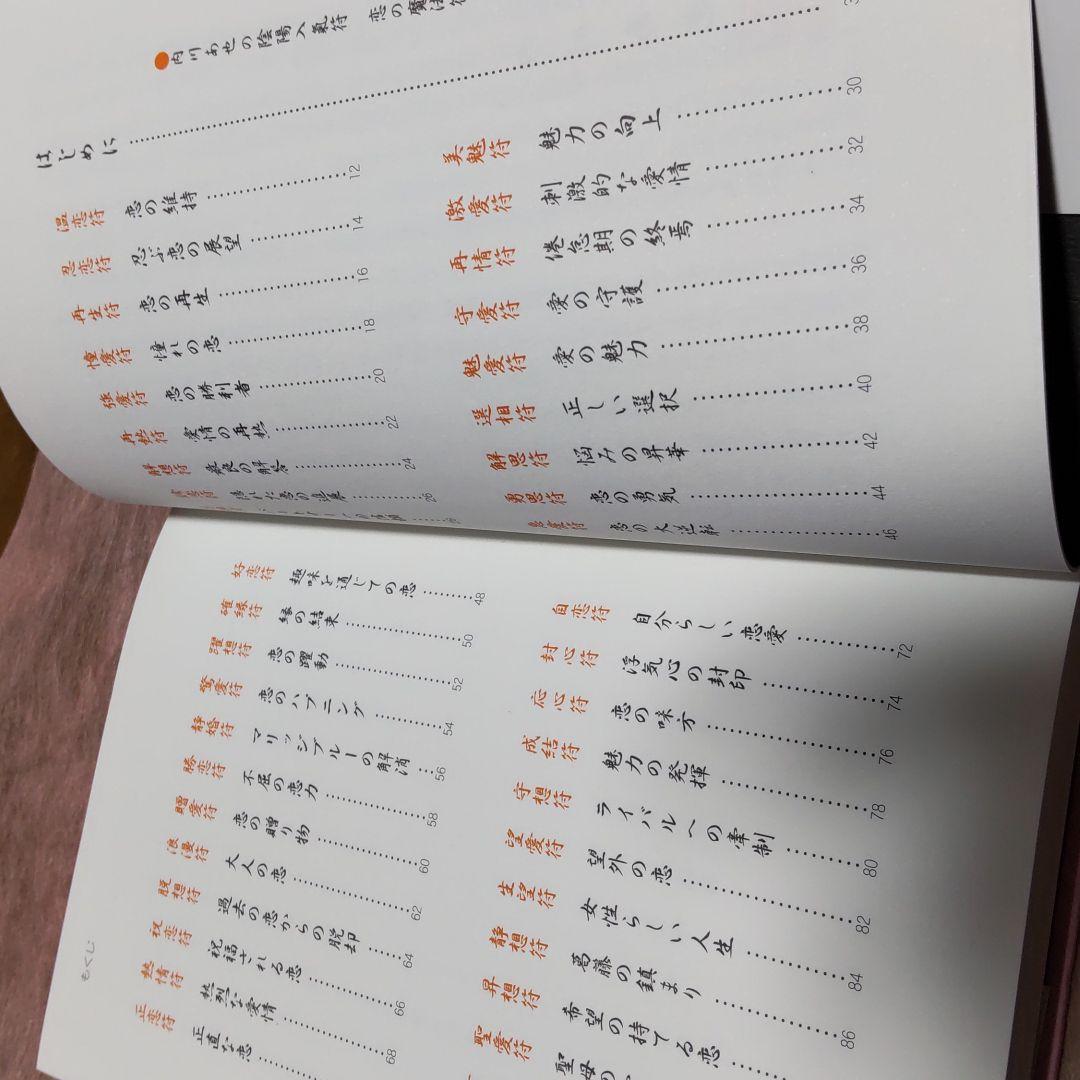 ●内川あせの陰陽入氣符 恋の魔法
はじめに
温恋符 恋の維持 12
忍恋符 忍ぶ恋の展望 14
再生符 恋の再生 16
憧愛符 憧れの恋 18
強愛符 恋の勝利者 20
再熱符 愛情の再熱 22
解想符 の解答 24
26
美魅符 魅力の向上 30
激愛符 刺激的な愛情 32
再情符 倦怠期の終焉 34
守愛符 愛の守護 36
魅愛符 愛の魅力 38
選相符 正しい選択 40
解思符 悩みの昇華 42
勇思符 恋の勇気 44
恋の大逆転 46
好恋符 趣味を通じての恋 48
確縁符 縁の結束 50
躍想符 恋の躍動 52
驚愛符 恋のハプニング 54
静婚符 マリッジブルーの解消 56
勝恋符 不屈の恋力 58
贈愛符 恋の贈り物 60
浪漫符 大人の恋 62
脱想符 過去の恋からの脱却 64
祝恋符 祝福される恋 66
熱情符 熱烈な愛情 68
正恋符 正直な恋
もくじ
自恋符 自分らしい恋愛 72
封心符 浮気心の封印 74
応心符 恋の味方 76
成結符 魅力の発揮 78
守想符 ライバルへの牽制 80
望愛符 望外の恋 82
生望符 女性らしい人生 84
静想符 葛藤の鎮まり 86
昇想符 希望の持てる恋
聖愛符 聖母の